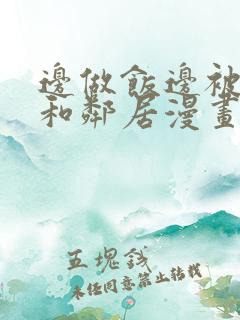 邊做飯邊被
和鄰居漫畫
五塊錢
未经同意禁止转载